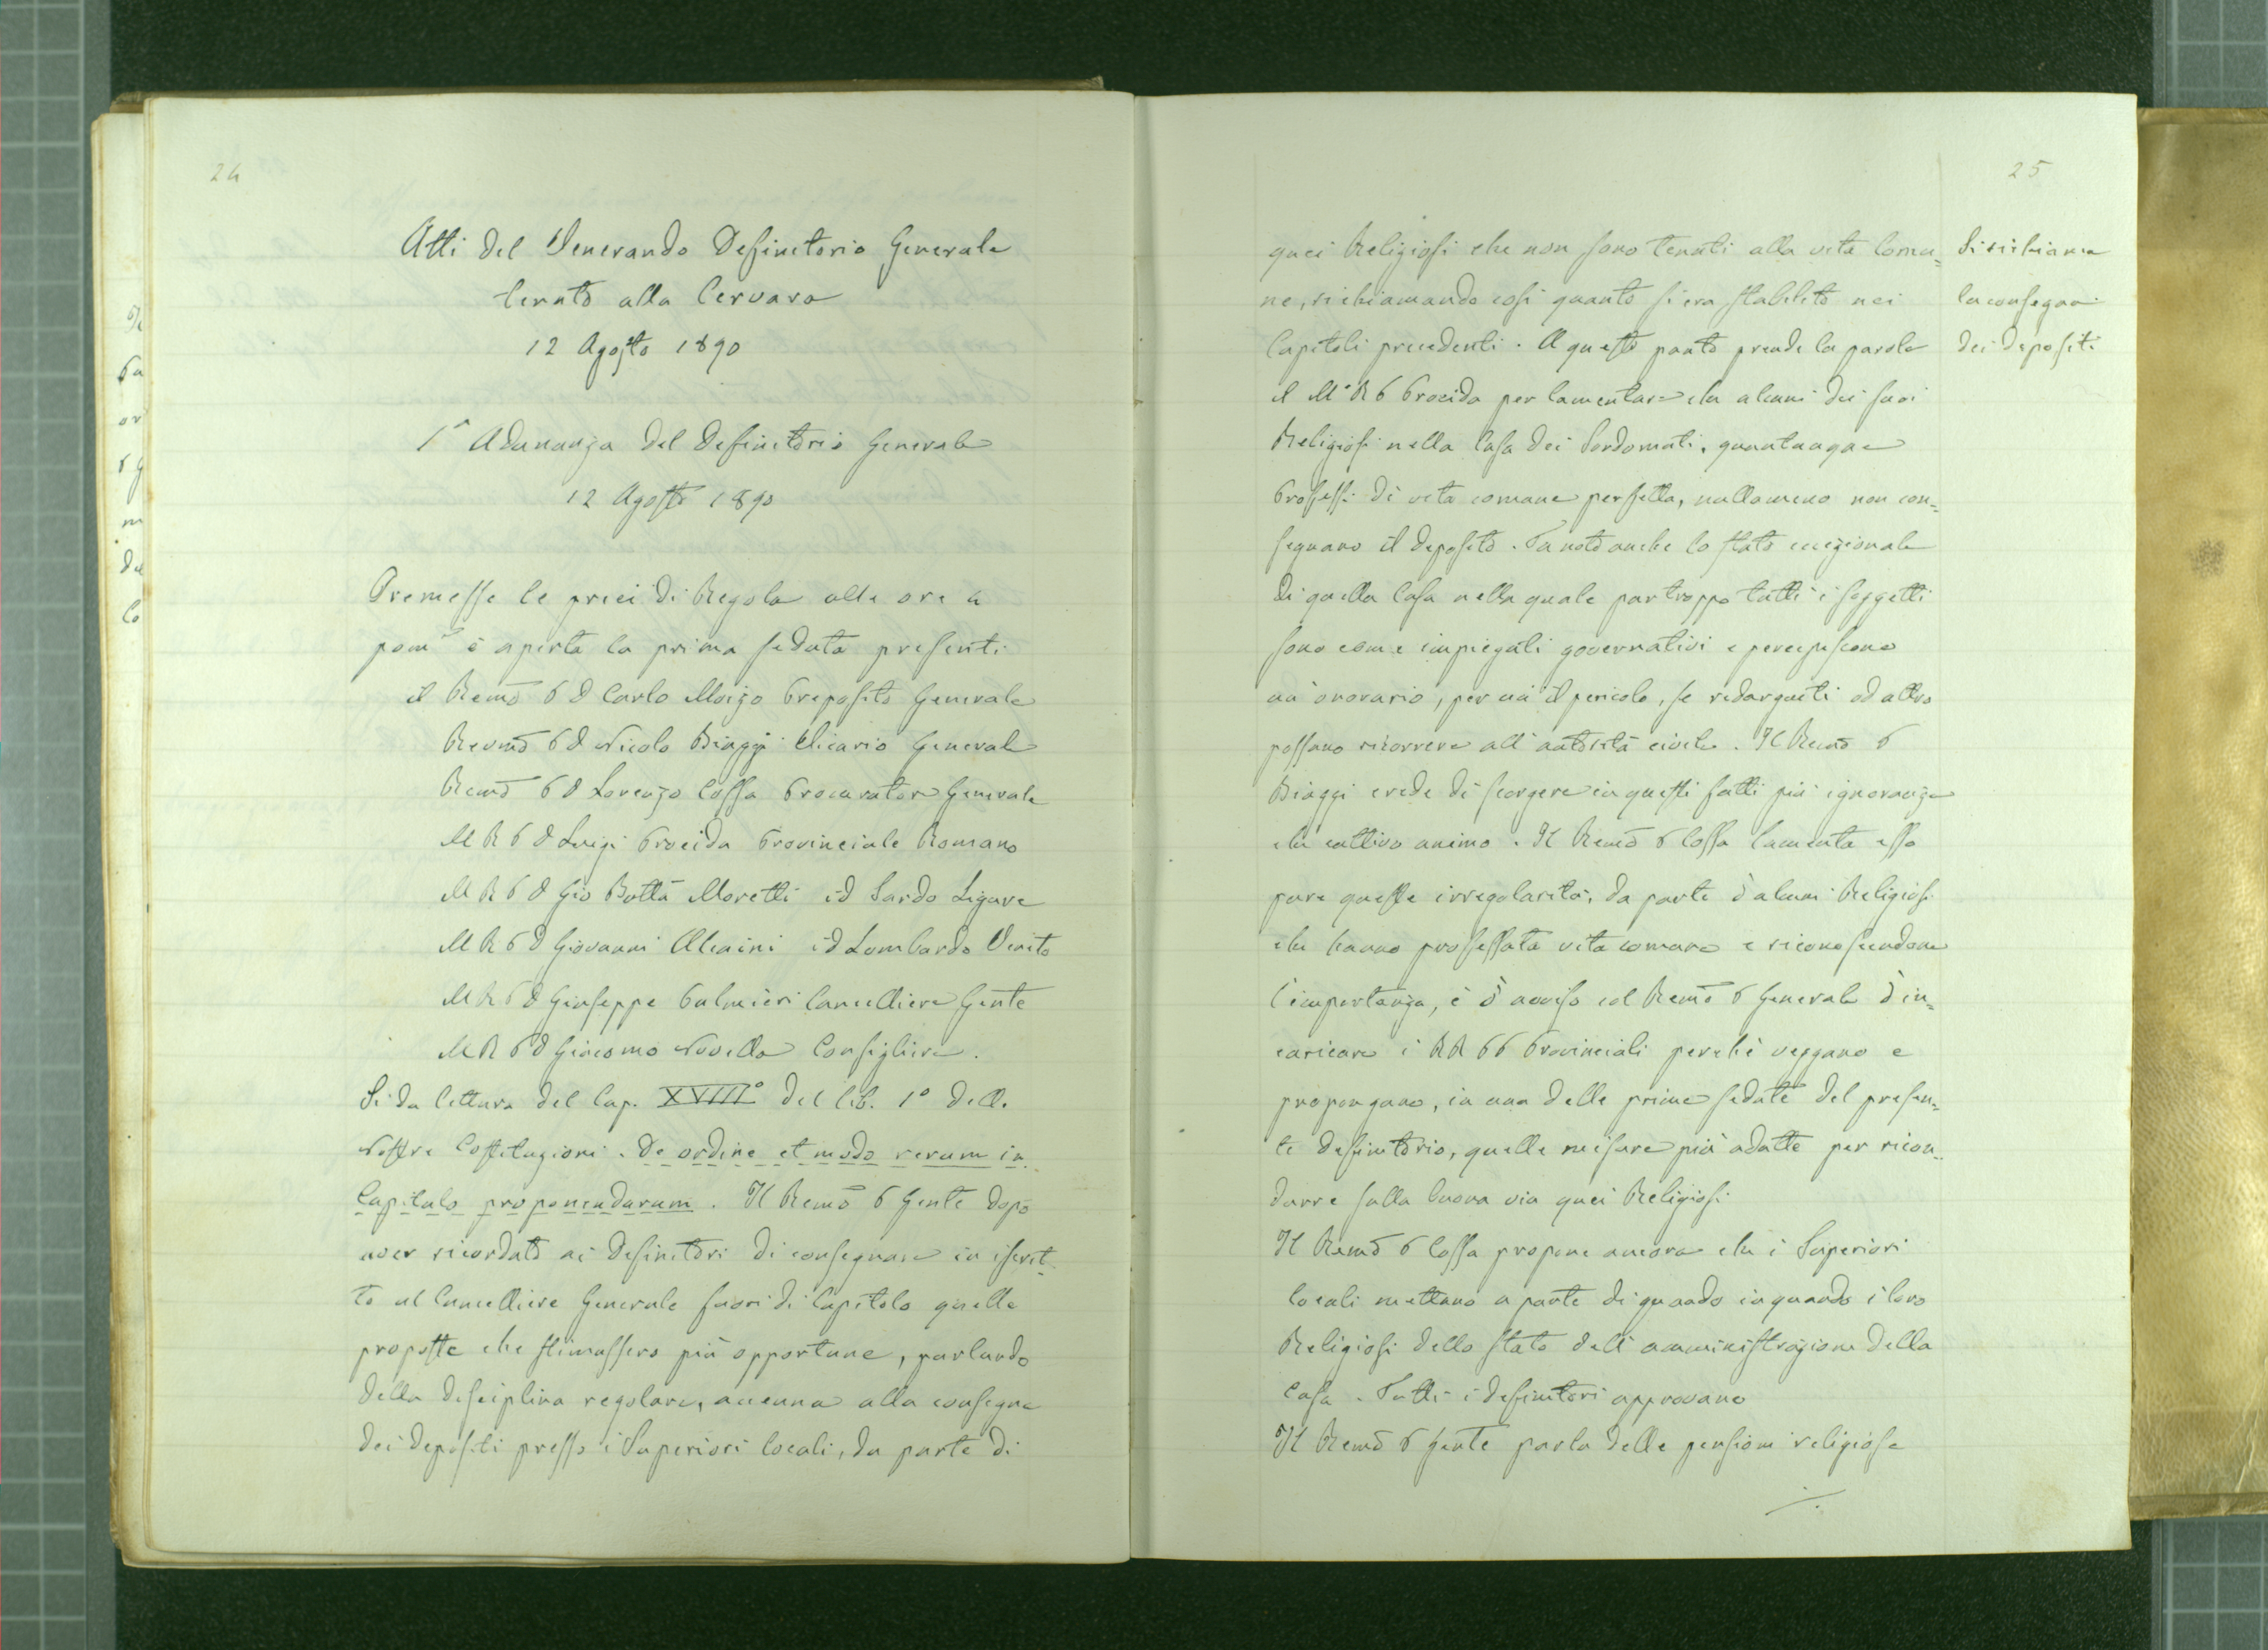 24
Atti del Venerando Definitorio Generale
tenuto alla Cervara
12 Agosto 1890
1ª Adunanza del Definitorio Generale
12 Agosto 1890
Premesse le preci di Regola alle ore 4
pomᵉ è aperta la prima seduta presenti
il Remõ P D Carlo Moizo Preposito Generale
Revmõ P D Nicolo Biaggi Vicario Generale
Remõ P D Lorenzo Cossa Procurator Generale
M R P D Luigi Procida Provinciale Romano
M R P D Gio Batta Moretti id Sardo Ligure
M R P D Giovanni Alcaini id Lombardo Veneto
M R P D Giuseppe Palmieri Cancelliere Gente
M R P D Giacomo Novella Consigliere.
Si da lettura del Cap. XVIII° del lib. 1° delle
Nostre Costituzioni. De ordine et modo rerum in
Capitulo proponendarum. Il Remõ P Gente dopo
aver ricordato ai Definitori di consegnare in iscrit-
to al Cancelliere Generale fuori di Capitolo quelle
proposte che stimassero più opportune, parlando
della disciplina regolare, accenna alla consegna
dei depositi presso i Superiori locali, da parte di
25
quei Religiosi che non sono tenuti alla vita comu=
ne, richiamando così quanto si era stabilito nei
Capitoli precedenti. A questo punto prende la parola
il M R P Procida per lamentare che alcuni dei suoi
Religiosi nella Casa dei Sordomuti, quantunque
Professi di vita comune perfetta, nullameno non con=
segnano il deposito. Fa noto anche lo stato eccezionale
di quella Casa nella quale purtroppo tutti i soggetti
sono come impiegati governativi e percepiscono
un' onorario, per cui il pericolo, se redarguiti od altro
possano ricorrere all' autorità civile. Il Remõ P
Biaggi crede di scorgere in questi fatti più ignoranza
che cattivo animo. Il Remõ P Cossa lamenta esso
pure queste irregolarità, da parte d' alcuni Religiosi
che hanno professata vita comune e riconoscendone
l' importanza, è d' avviso col Remõ P Generale d' in=
caricare i RR PP Provinciali perchè veggano e
propongano, in una delle prime sedute del presen=
te definitorio, quelle misure più adatte per ricon-
durre sulla buona via quei Religiosi.
Il Remõ P Cossa propone ancora che i Superiori
locali mettano a parte di quando in quando i loro
Religiosi dello stato dell' amministrazione della
Casa. Tutti i definitori approvano
Il Remõ P Gente parla delle pensioni religiose
./.
Si richiama
la consegna
dei depositi